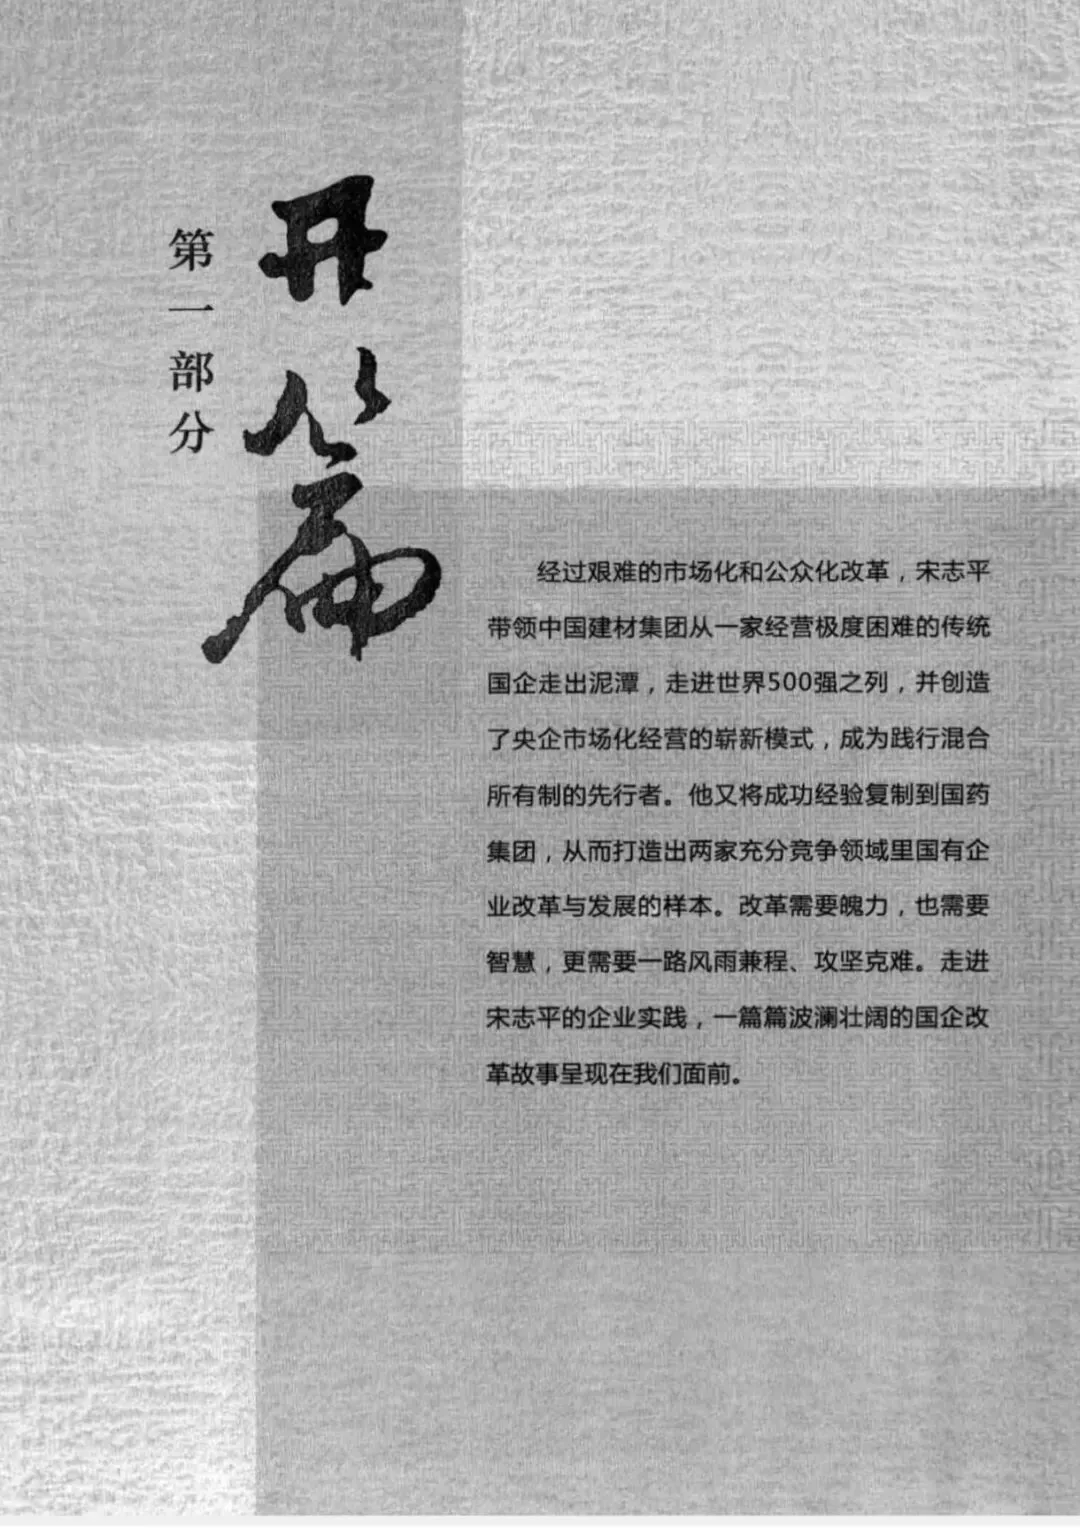 第一部分
开篇
经过艰难的市场化和公众化改革，宋志平
带领中国建材集团从一家经营极度困难的传统
国企走出泥潭，走进世界500强之列，并创造
了央企市场化经营的崭新模式，成为践行混合
所有制的先行者。他又将成功经验复制到国药
集团，从而打造出两家充分竞争领域里国有企
业改革与发展的样本。改革需要魄力，也需要
智慧，更需要一路风雨兼程、攻坚克难。走进
宋志平的企业实践，一篇篇波澜壮阔的国企改
革故事呈现在我们面前。